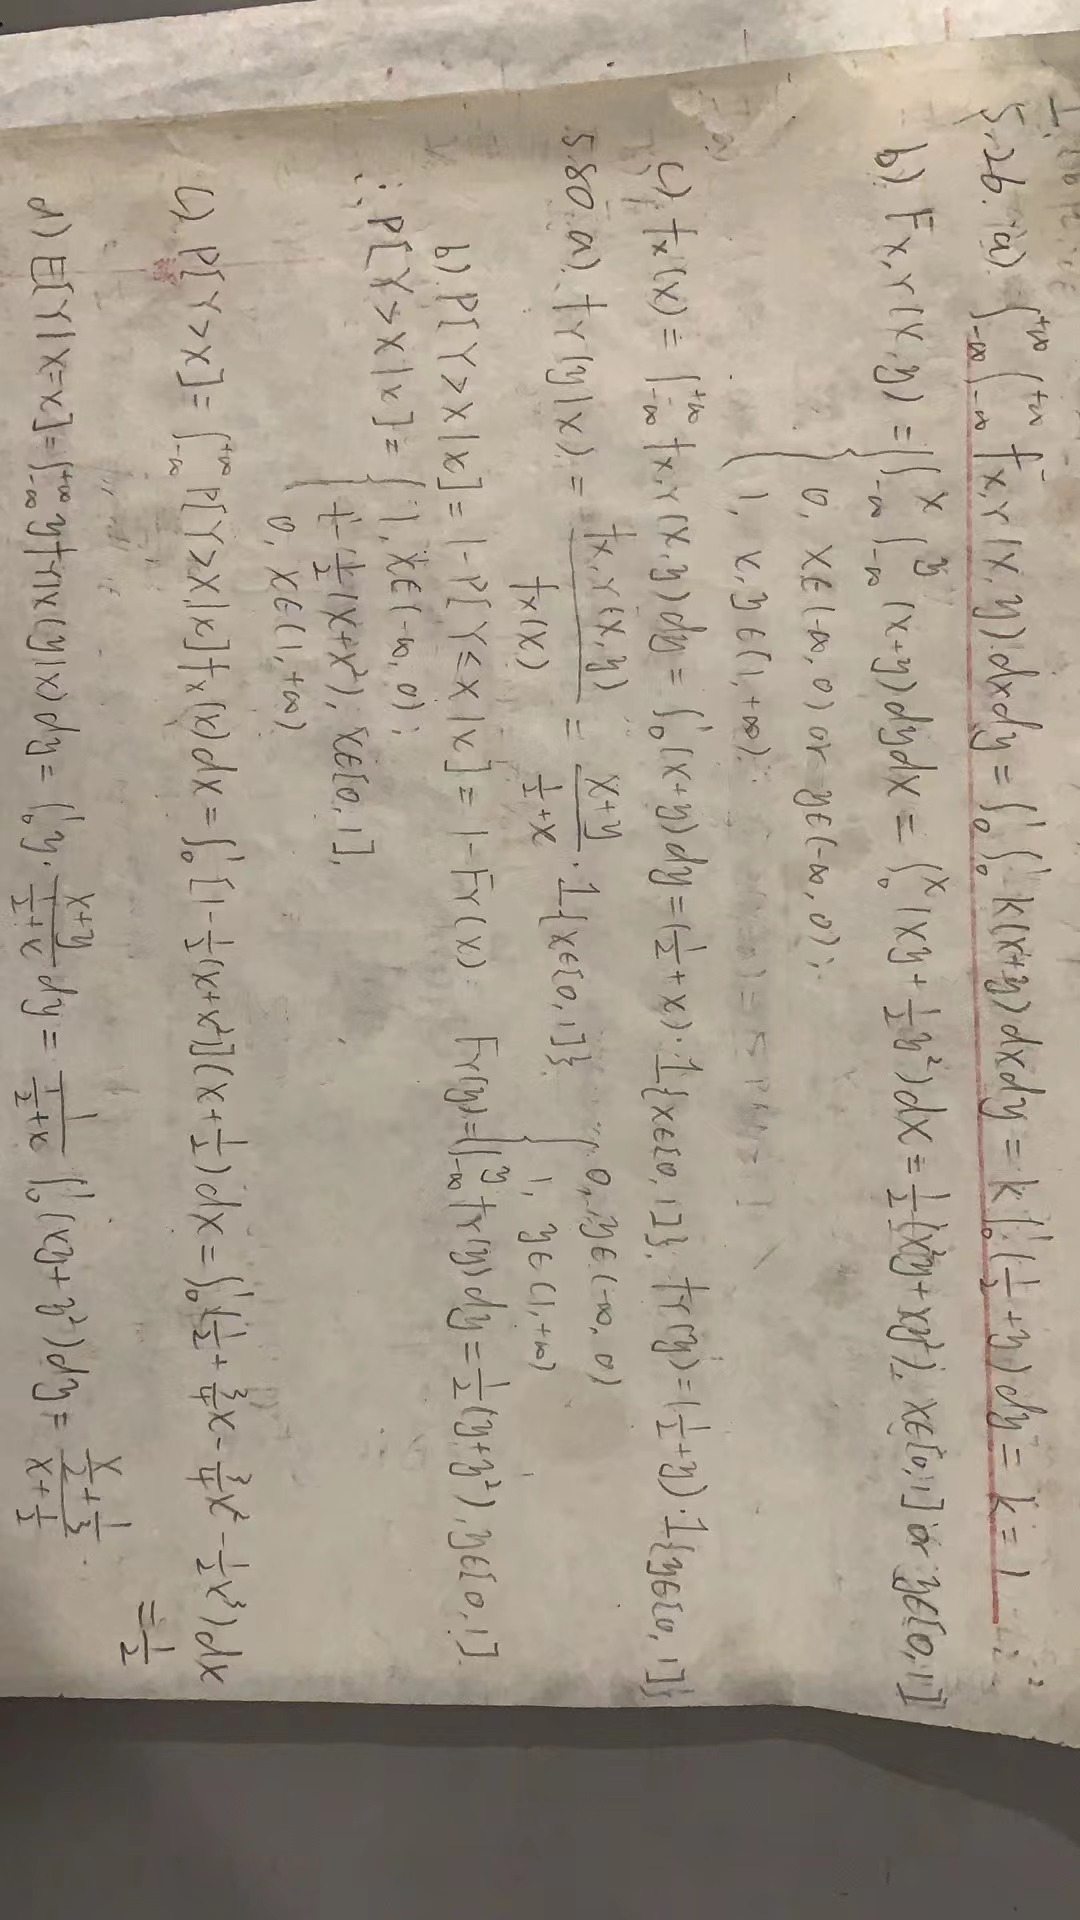 5.26. a). ∫_{-∞}^{+∞} ∫_{-∞}^{+∞} f_{X,Y}(x,y) dxdy = ∫_0^1 ∫_0^1 k(x+y) dxdy = k∫_0^1 (1/2+y) dy = k = 1
b). F_{X,Y}(x,y) = { ∫_{-∞}^x ∫_{-∞}^y (x+y) dydx = ∫_0^x (xy + 1/2 y²) dx = 1/2 (x²y+xy²), x∈[0,1] or y∈[0,1]
0, x∈(-∞,0) or y∈(-∞,0);
1, x,y∈(1,+∞).
c). f_X(x) = ∫_{-∞}^{+∞} f_{X,Y}(x,y) dy = ∫_0^1 (x+y) dy = (1/2+x)·1{x∈[0,1]}, f_Y(y) = (1/2+y)·1{y∈[0,1]}
5.80. a). f_Y(y|x) = f_{X,Y}(x,y) / f_X(x) = (x+y)/(1/2+x) · 1{x∈[0,1]}.
b). P[Y>X|x] = 1-P[Y≤X|x] = 1-F_Y(x) F_Y(y) = { 0, y∈(-∞,0)
1, y∈(1,+∞)
∫_{-∞}^y f_Y(y) dy = 1/2 (y+y²), y∈[0,1].
∴ P[Y>X|x] = { 1, x∈(-∞,0);
1-1/2(x+x²), x∈[0,1],
0, x∈(1,+∞)
c). P[Y>X] = ∫_{-∞}^{+∞} P[Y>X|x] f_X(x) dx = ∫_0^1 [1-1/2(x+x²)](x+1/2) dx = ∫_0^1 (1/2 + 3/4 x - 3/4 x² - 1/2 x³) dx
= 1/2
d) E[Y|X=x] = ∫_{-∞}^{+∞} y f_{Y|X}(y|x) dy = ∫_0^1 y · (x+y)/(1/2+x) dy = 1/(1/2+x) ∫_0^1 (xy+y²) dy = (x/2+1/3)/(x+1/2).